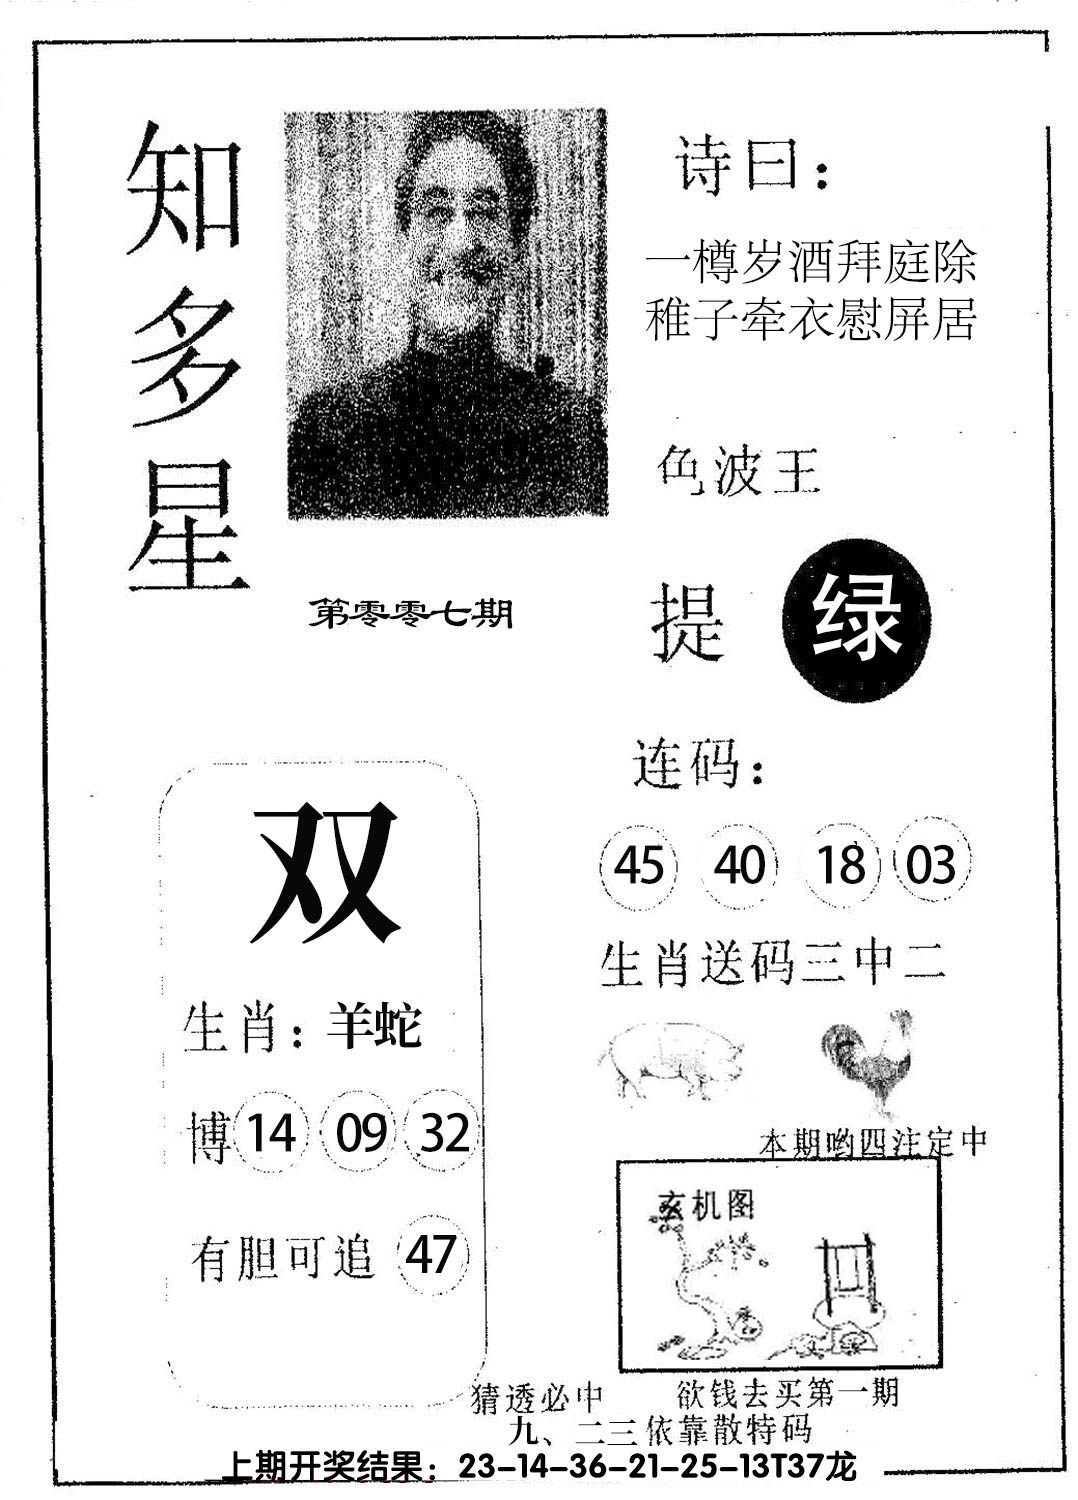 知多星
诗曰：
一樽岁酒拜庭除
稚子牵衣慰屏居
色波王
第零零七期
提 绿
连码：
45 40 18 03
双
生肖送码三中二
生肖：羊蛇
博 14 09 32
本期哟四注定中
玄机图
有胆可追 47
猜透必中 欲钱去买第一期
九、二三依靠散特码
上期开奖结果：23-14-36-21-25-13T37龙